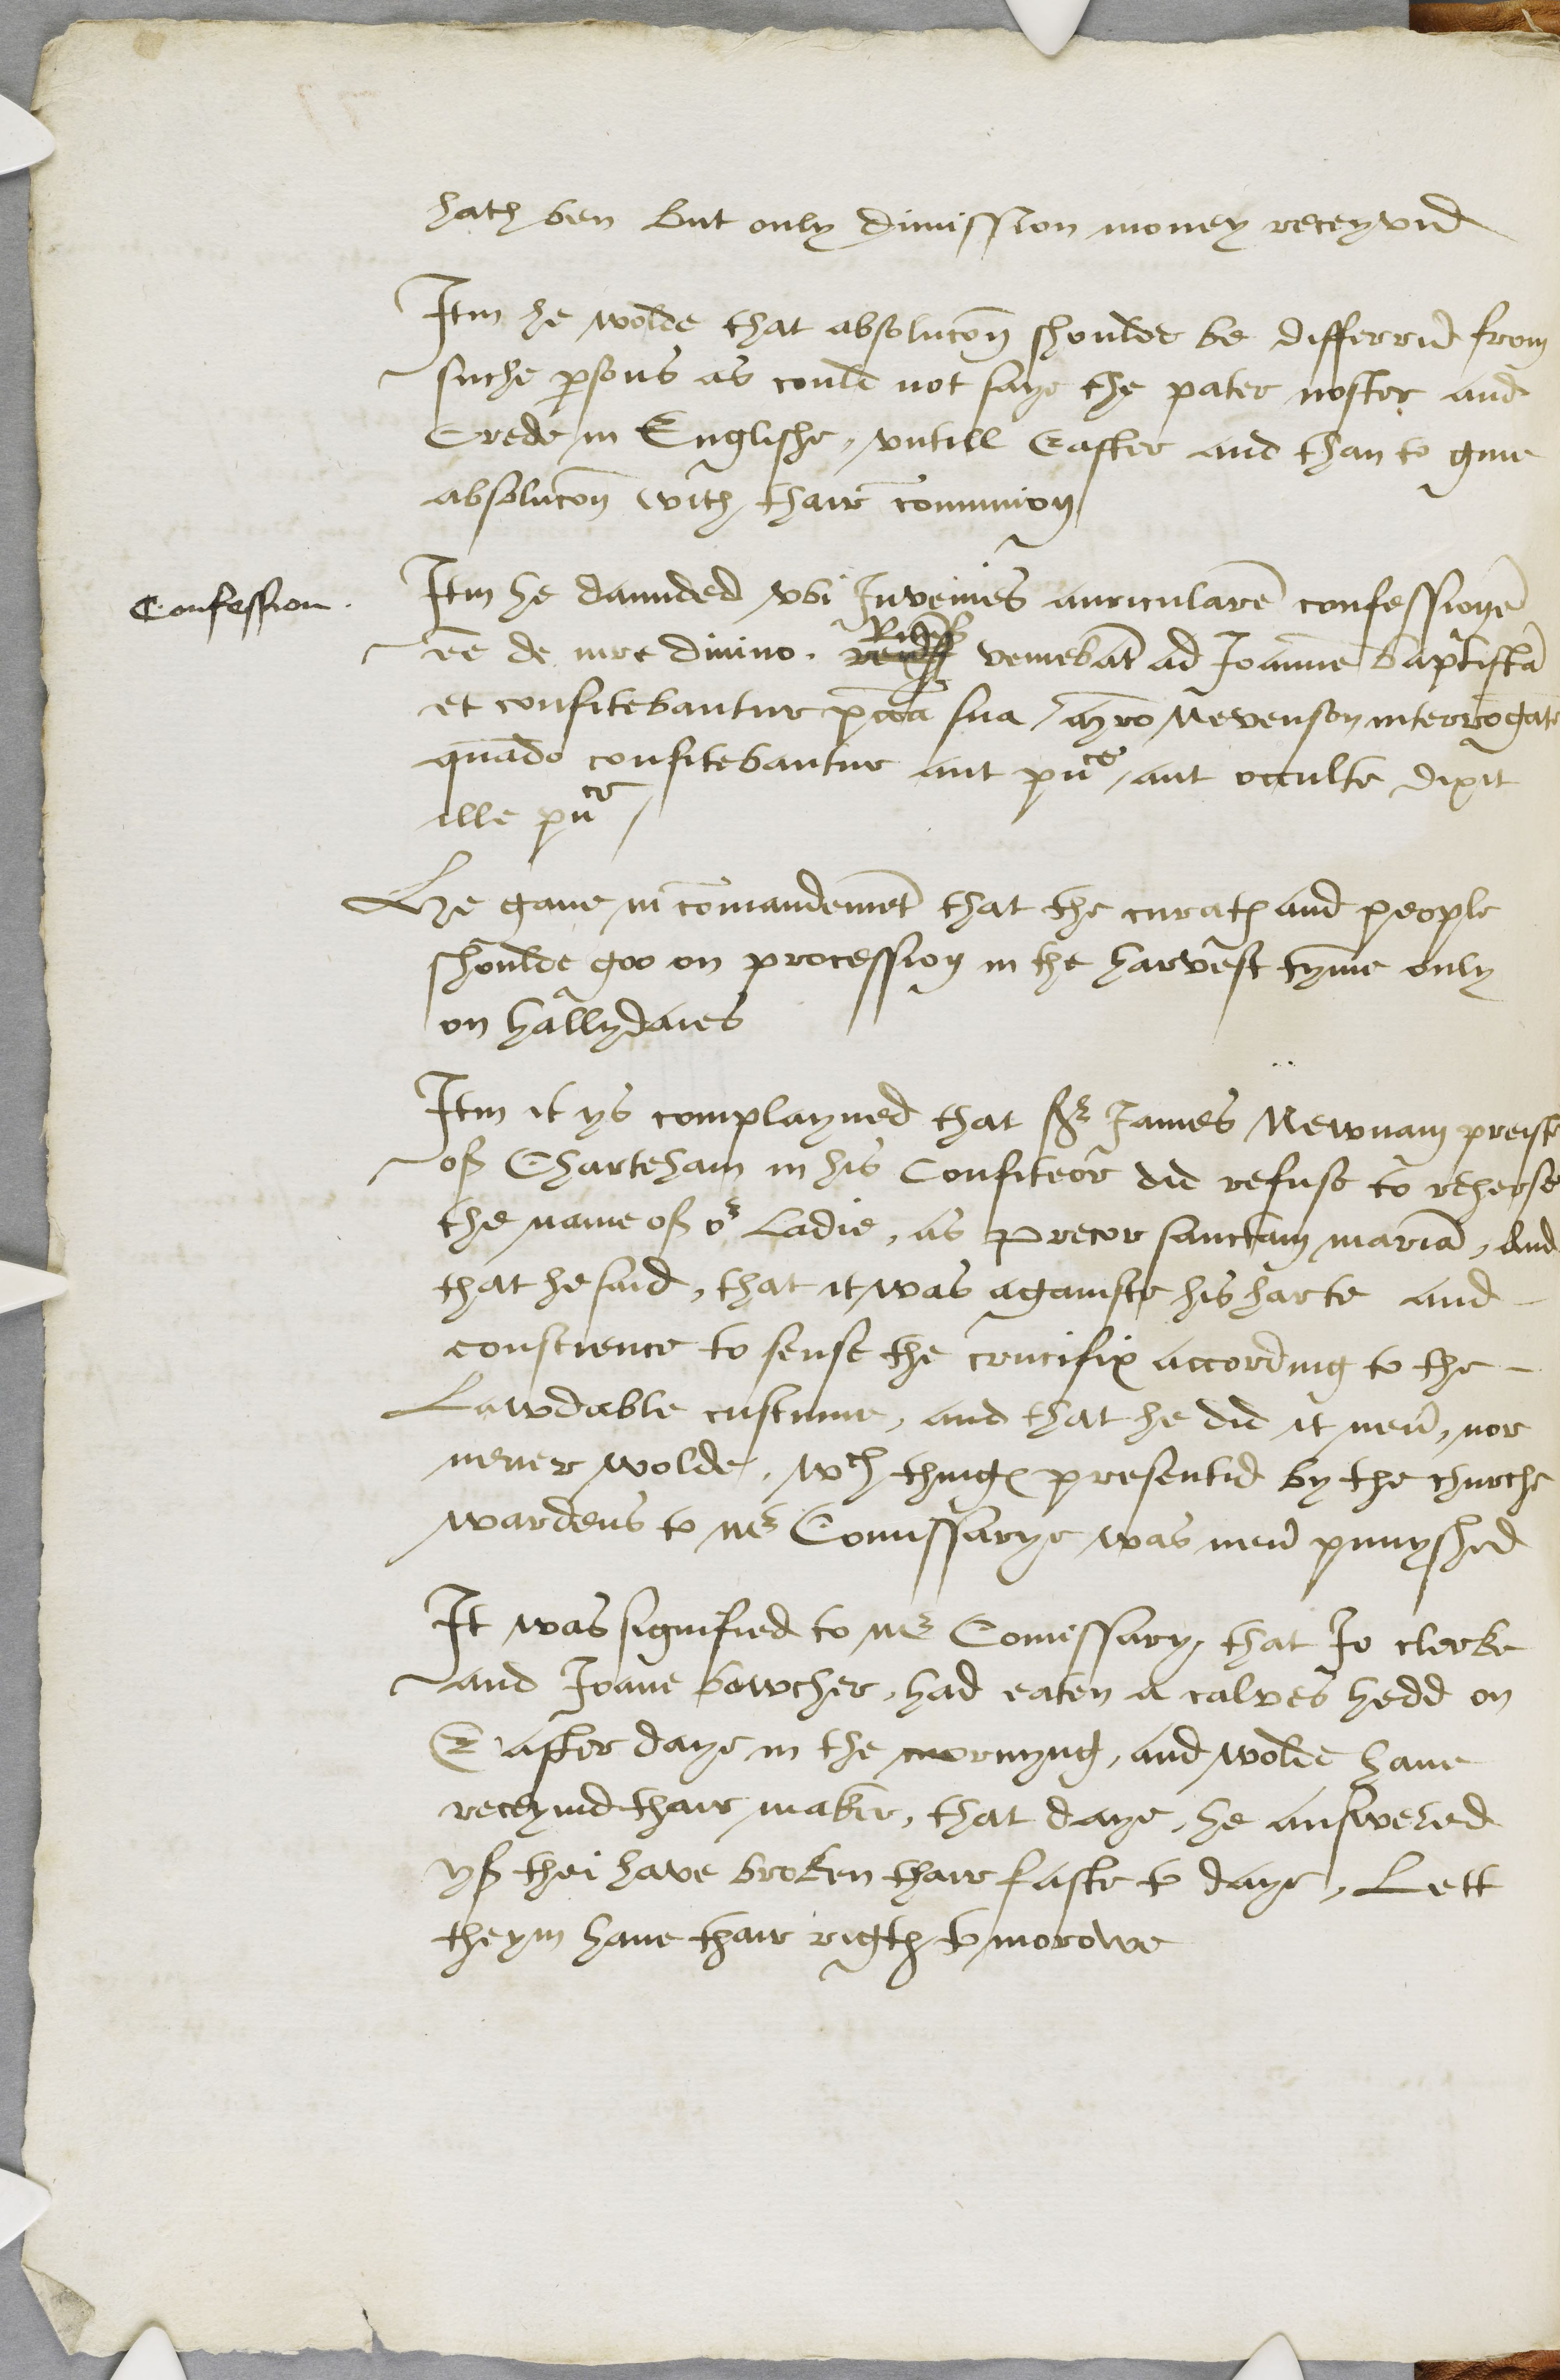 hath ben but only dimission money receyvid
Itm he wolde that absolucon shoulde be differrid from
suche psons as could not saye the pater noster and
Crede in Englishe, vntill Easter and than to giue
absolucon with thair comunion
Confession.
Itm he daunded vbi Invenies auricularē confessionē
ēē de iure divino. veniebāt ad Joannē baptistā
et confitebantur pccā sua / Nevenson interrogāte
quādo confitebantur aut puce, aut occulte dixit
ille puce /
He gaue in cōmandemēt that the curatꝭ and people
shoulde goo on procession in the harvest tyme only
on hallydaies
Itm it ys complayned that Sr James Newnam preist
off Charteham in his Confiteor did refuse to reherse
the name off or Ladie, as Precor sanctam mariā, And
that he said, that it was againste his harte and
conscience to sense the crucifix according to the
Lawdable custume, and that he did it neu̅, nor
neuer wolde. wch thingꝭ presentid by the churche
wardens to mr Comissarye was neu̅ punyshed
It was signified to mr Comissary, that Jo clerke
and Joane bowcher, had eaten a calves hedd on
Easter daye in the mornyng, and wolde haue
receyuid thair maker, that daye, he answered
yff thei have broken thair faste to daye, Lett
theym haue thair rigth to morowe